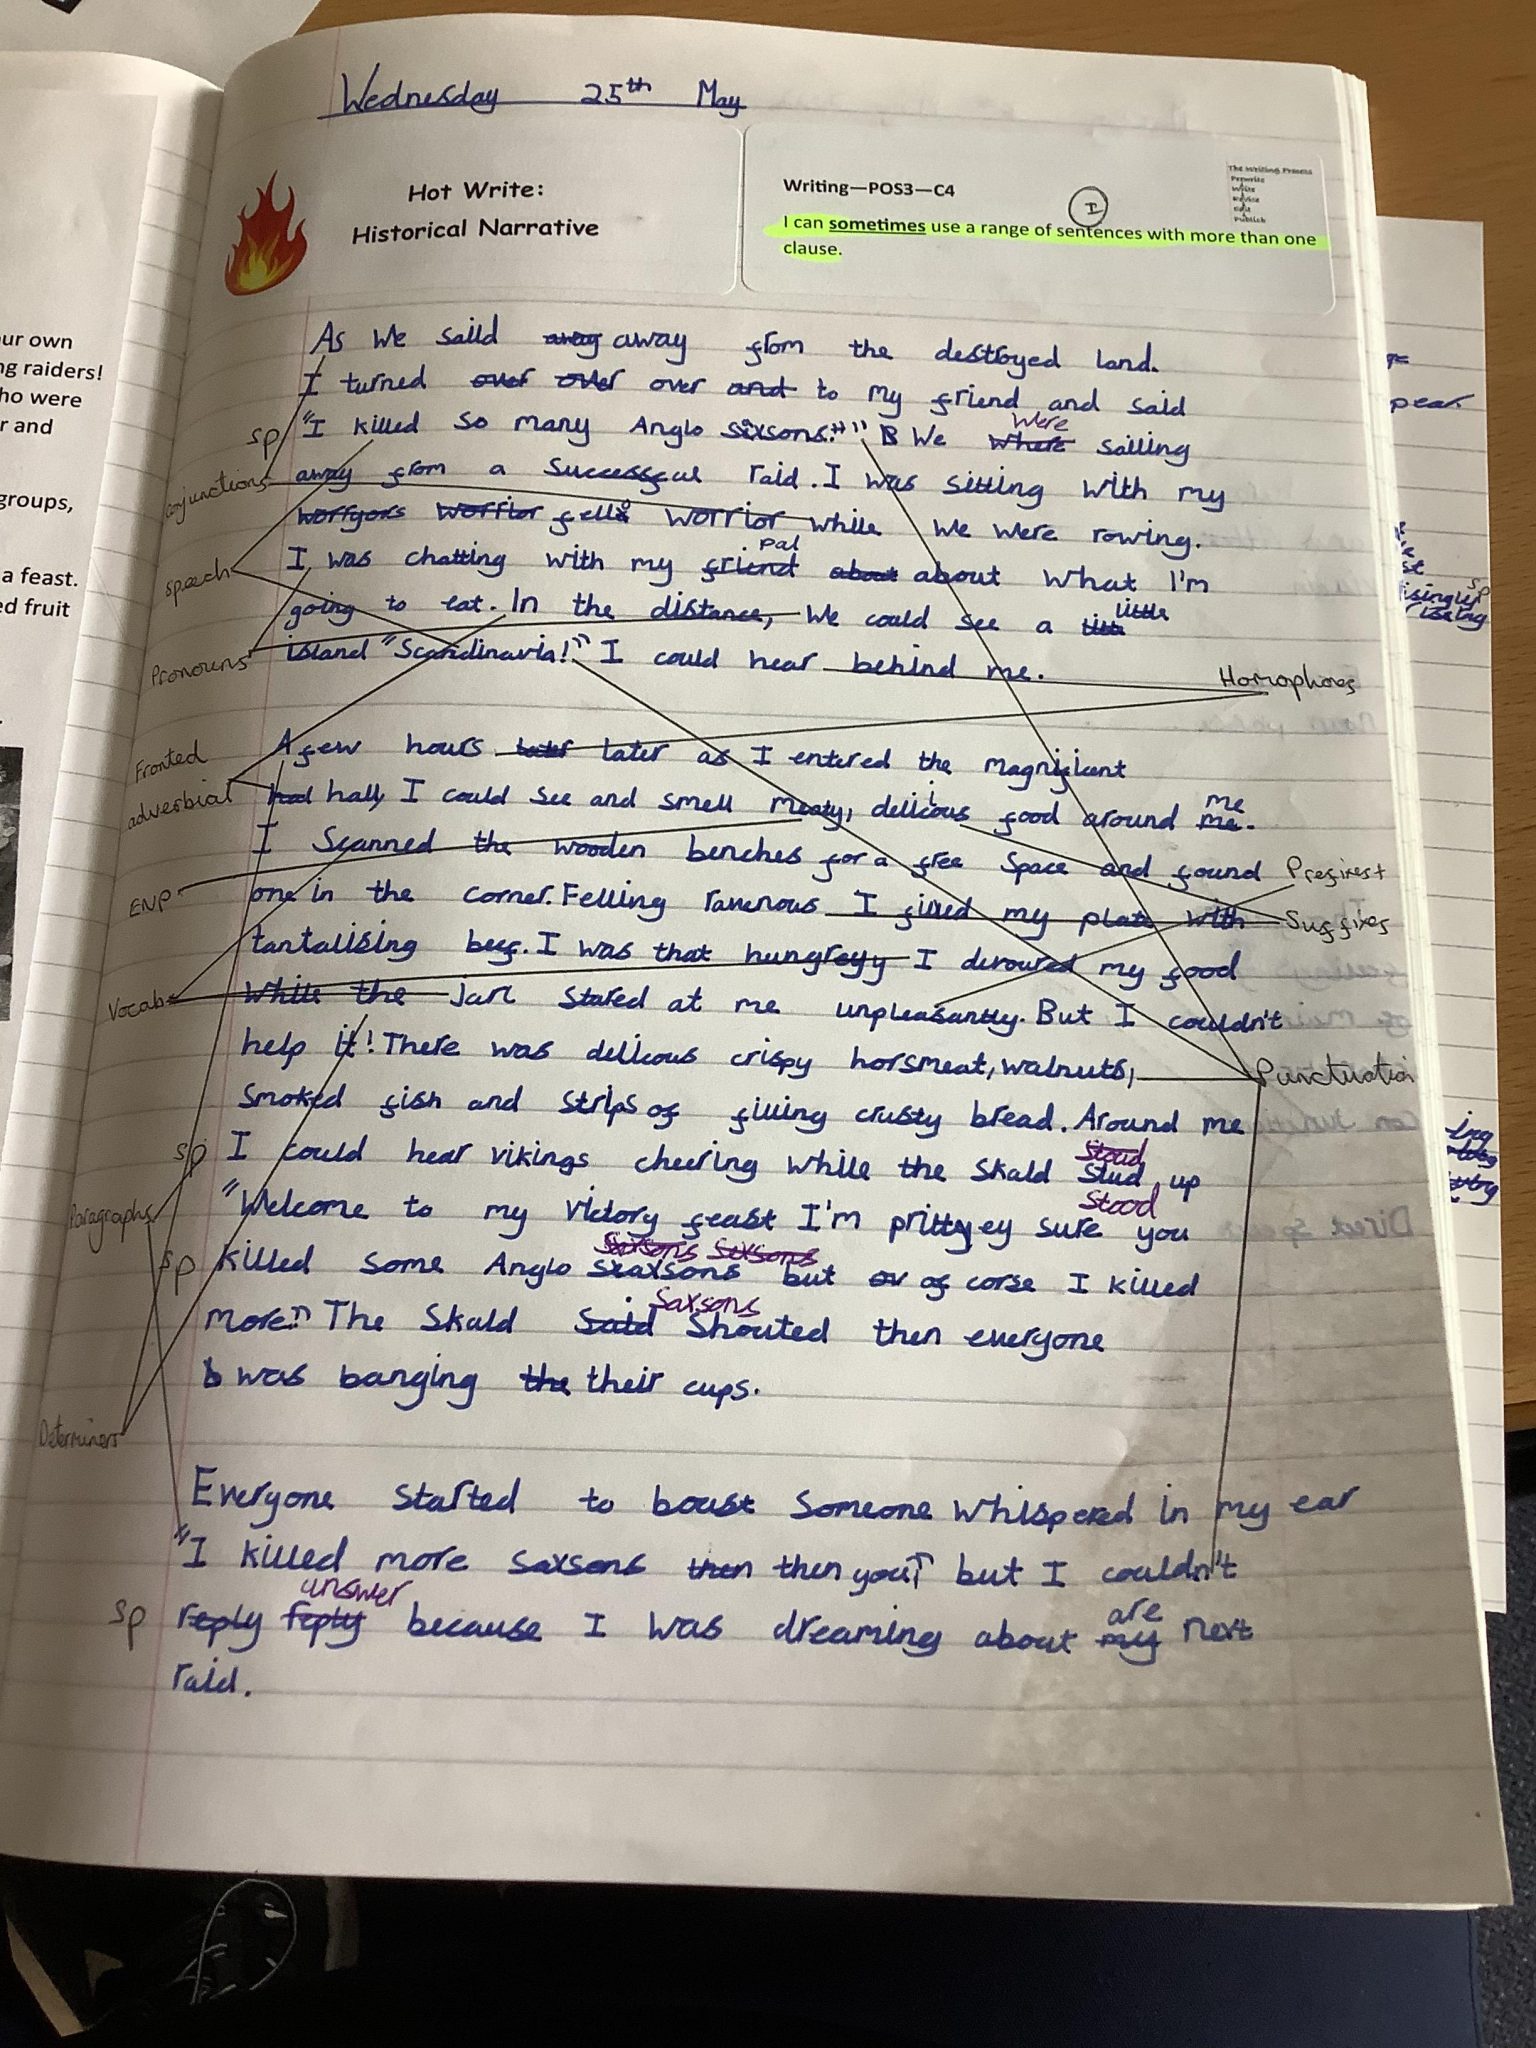 Wednesday 25th May
Hot Write:
Historical Narrative
Writing—POS3—C4
I
I can sometimes use a range of sentences with more than one
clause.
The Writing Process
Prewrite
Write
Revise
Edit
Publish
ur own
ng raiders!
ho were
r and
groups,
a feast.
ed fruit
As we saild away away from the destroyed land.
I turned over over over and to my friend and said
sp "I killed so many Anglo sixsons." B We where were sailing
conjunctions away from a successful raid. I was sitting with my
worryors worrior fello worrior while we were rowing.
speech I was chatting with my friend pal about about what I'm
going to eat. In the distance, we could see a little
Pronouns island "Scandinavia!" I could hear behind me.
Homophones
Fronted adverbial
A few hours later later as I entered the magnificent
had hall, I could see and smell meaty, delicious food around me me.
I scanned the wooden benches for a free space and found
Prefixes +
ENP one in the corner. Felling ravenous I filled my plate with
Suffixes
tantalising beef. I was that hungreyy I devoured my food
Vocab while the jarl stared at me unpleasantly. But I couldn't
help it! There was delicous crispy horsmeat, walnuts,
Punctuation
smoked fish and strips of filling crusty bread. Around me
sp I could hear vikings cheering while the skald stud stood up
Paragraphs "Welcome to my victory feast I'm prittyey sure you
sp killed some Anglo saxsons but ov of corse I killed
more!" The skald said shouted then everyone
b was banging the their cups.
Determiners
Everyone started to boust someone whispered in my ear
"I killed more saxsons then then you!" but I couldn't
sp reply reply answer because I was dreaming about my are next
raid.